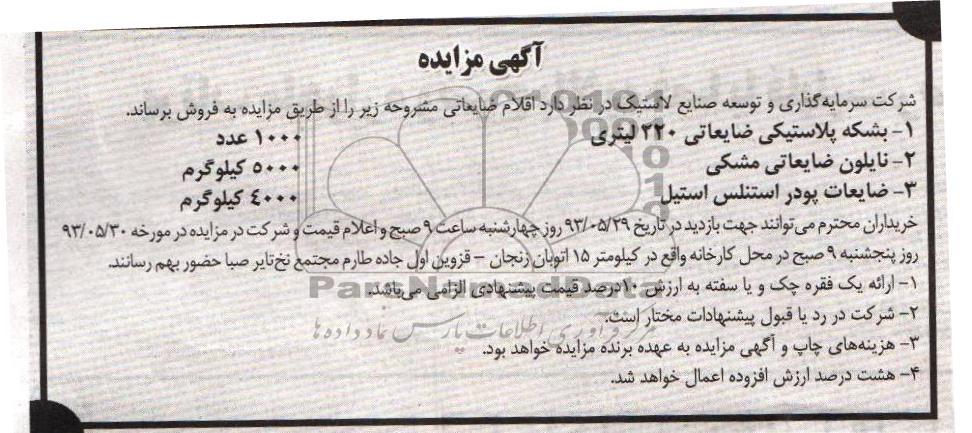 آگهی مزایده
شرکت سرمایه‌گذاری و توسعه صنایع لاستیک در نظر دارد اقلام ضایعاتی مشروحه زیر را از طریق مزایده به فروش برساند.
۱- بشکه پلاستیکی ضایعاتی ۲۲۰ لیتری ۱۰۰۰ عدد
۲- نایلون ضایعاتی مشکی ۵۰۰۰ کیلوگرم
۳- ضایعات پودر استنلس استیل ۴۰۰۰ کیلوگرم
خریداران محترم می‌توانند جهت بازدید در تاریخ ۹۳/۰۵/۲۹ روز چهارشنبه ساعت ۹ صبح و اعلام قیمت و شرکت در مزایده در مورخه ۹۳/۰۵/۳۰
روز پنجشنبه ۹ صبح در محل کارخانه واقع در کیلومتر ۱۵ اتوبان زنجان – قزوین اول جاده طارم مجتمع نخ‌تایر صبا حضور بهم رسانند.
۱- ارائه یک فقره چک و یا سفته به ارزش ۱۰درصد قیمت پیشنهادی الزامی می‌باشد.
ParsNamadData
۲- شرکت در رد یا قبول پیشنهادات مختار است.
گردآوری اطلاعات پارس نماد داده ها
۳- هزینه‌های چاپ و آگهی مزایده به عهده برنده مزایده خواهد بود.
۴- هشت درصد ارزش افزوده اعمال خواهد شد.